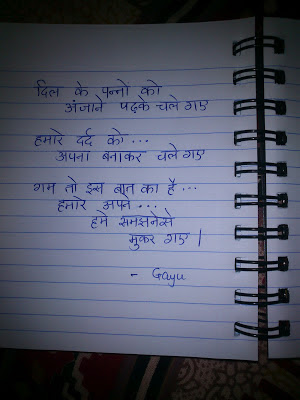 दिल के पन्नों को
अंजाने पढ़के चले गए
हमारे दर्द को...
अपना बनाकर चले गए
गम तो इस बात का है...
हमारे अपने...
हमे समझनेसे
मुकर गए |
- Gayu